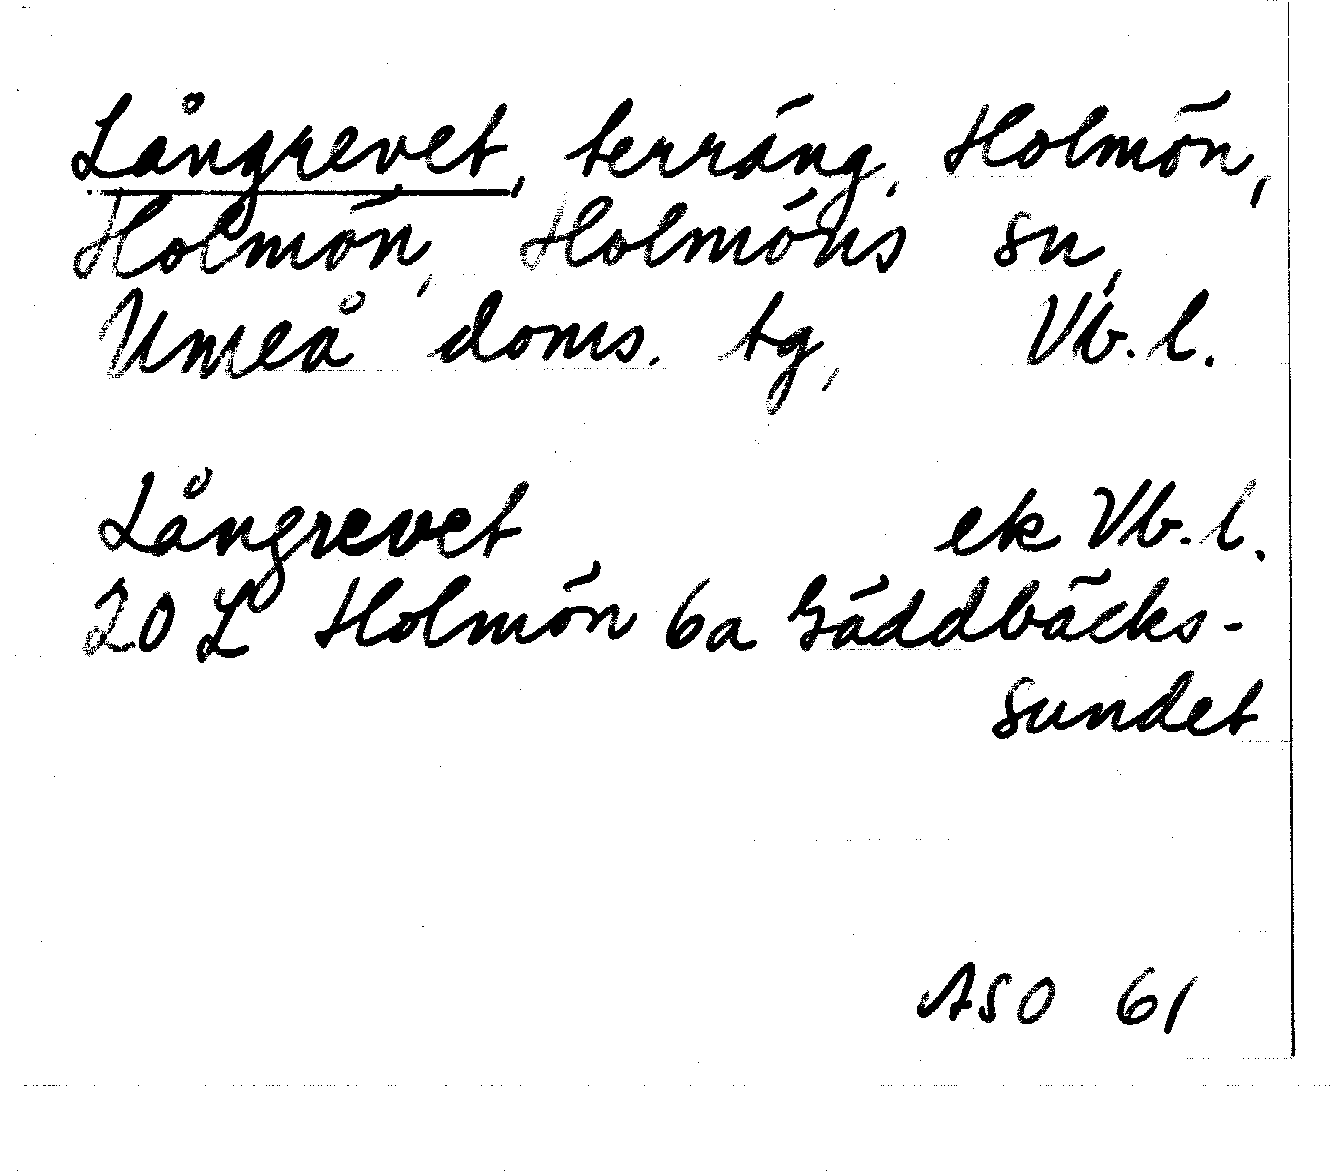 Långrevet, terräng, Holmön,
Holmön, Holmöns sn,
Umeå doms. tg, Vb. l.
Långrevet ek Vb. l.
20 L Holmön 6a Gäddbäcks-
sundet
ASO 61